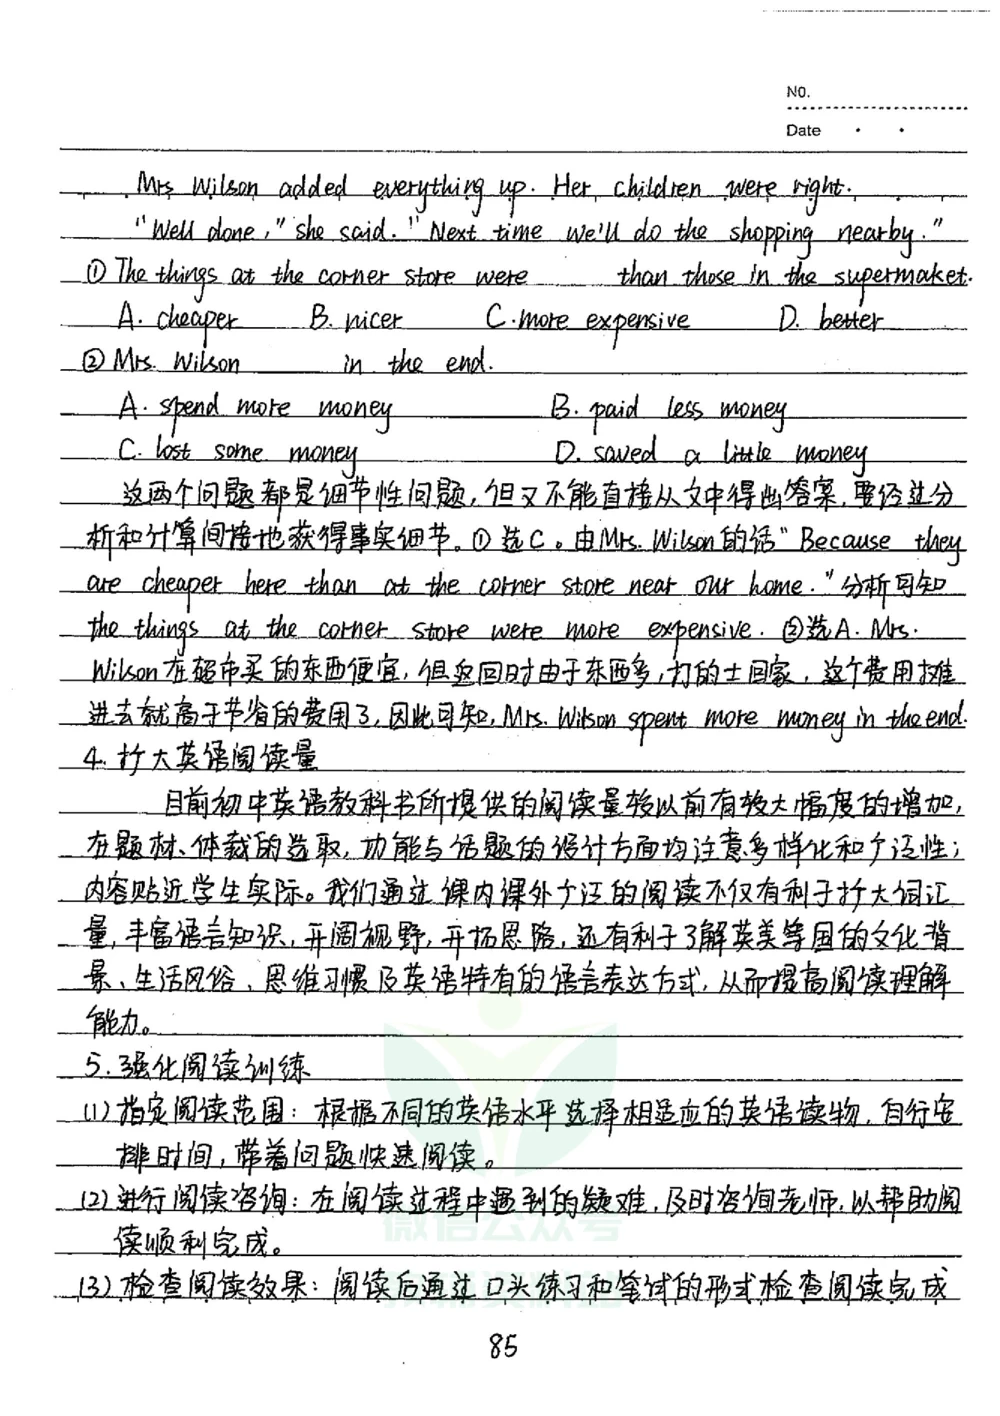 NO.
Date
Mrs Wilson added everything up. Her children were right.
"Well done," she said. "Next time we'll do the shopping nearby."
① The things at the corner store were than those in the supermaket.
A. cheaper B. nicer C. more expensive D. better
② Mrs. Wilson in the end.
A. spend more money B. paid less money
C. lost some money D. saved a little money
这两个问题都是细节性问题,但又不能直接从文中得出答案,要经过分
析和计算间接地获得事实细节。①选C。由Mrs. Wilson的话"Because they
are cheaper here than at the corner store near our home."分析可知
the things at the corner store were more expensive. ②选A. Mrs.
Wilson在超市买的东西便宜,但返回时由于东西多,打的士回家,这个费用摊
进去就高于节省的费用了,因此可知,Mrs. Wilson spent more money in the end.
4. 扩大英语阅读量
目前初中英语教科书所提供的阅读量较以前有较大幅度的增加,
在题材、体裁的选取,功能与话题的设计方面均注意多样化和广泛性;
内容贴近学生实际。我们通过课内课外广泛的阅读不仅有利于扩大词汇
量,丰富语言知识,开阔视野,开拓思路,还有利于了解英美等国的文化背
景、生活风俗、思维习惯及英语特有的语言表达方式,从而提高阅读理解
能力。
5. 强化阅读训练
(1)指定阅读范围:根据不同的英语水平选择相适应的英语读物,自行安
排时间,带着问题快速阅读。
(2)进行阅读咨询:在阅读过程中遇到的疑难,及时咨询老师,以帮助阅
读顺利完成。
微信公众号
(3)检查阅读效果:阅读后通过口头练习和笔试的形式检查阅读完成
85